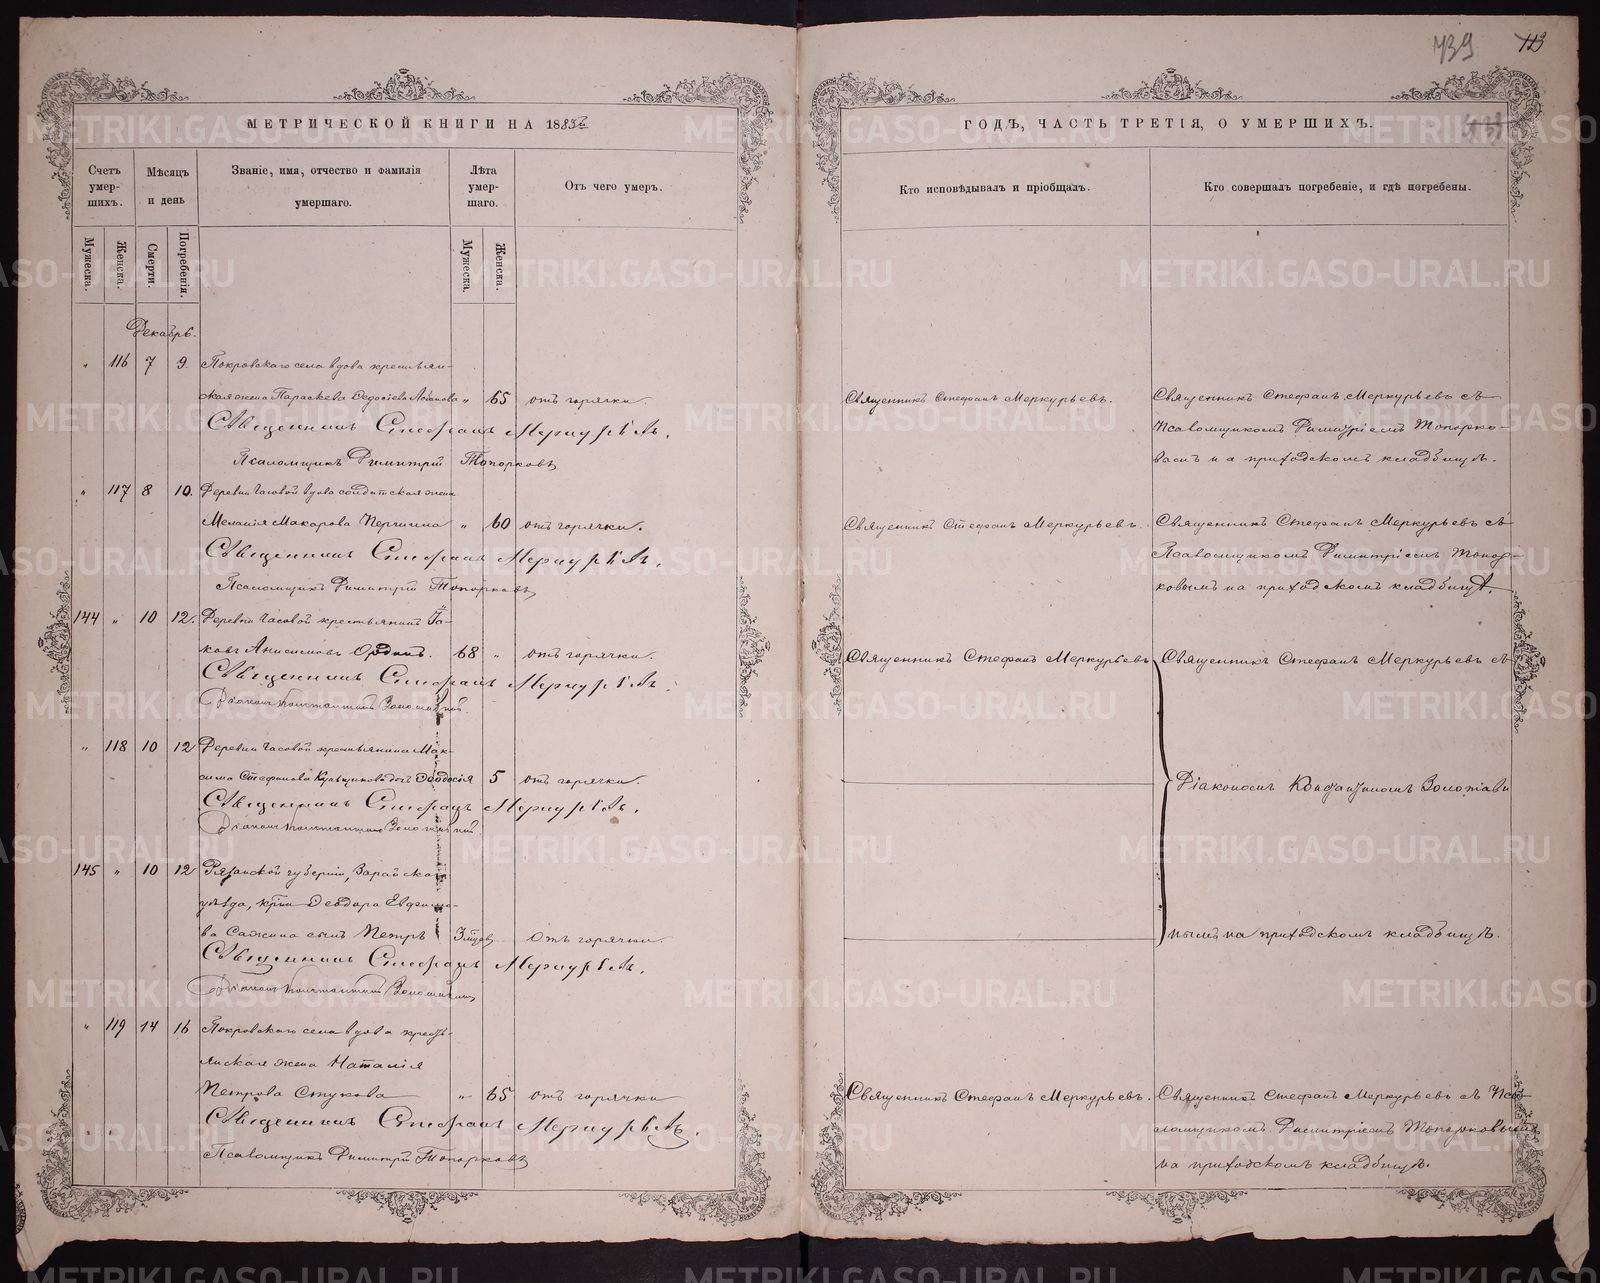 739 113
МЕТРИЧЕСКОЙ КНИГИ НА 1885й
ГОДЪ, ЧАСТЬ ТРЕТІЯ, О УМЕРШИХЪ.
Счетъ умер-шихъ.
Мѣсяцъ и день
Званіе, имя, отчество и фамилія умершаго.
Лѣта умер-шаго.
Отъ чего умеръ.
Кто исповѣдывалъ и пріобщалъ.
Кто совершалъ погребеніе, и гдѣ погребены.
Мужеска.
Женска.
Смерти.
Погребенія.
Мужеска.
Женска.
Декабрь.
" 116 7 9. Покровскаго села вдова крестьян-
ская жена Параскева Ѳедосіева " 65 отъ горячки.
Священникъ Стефанъ Меркурьевъ.
Псаломщикъ Димитрій Топорковъ
Священникъ Стефанъ Меркурьевъ.
Священникъ Стефанъ Меркурьевъ съ
Псаломщикомъ Димитріемъ Топорко-
вымъ на приходскомъ кладбищѣ.
" 117 8 10. Деревни Часовой вдова солдатская жена
Меланія Макарова " 60 отъ горячки.
Священникъ Стефанъ Меркурьевъ.
Псаломщикъ Димитрій Топорковъ
Священникъ Стефанъ Меркурьевъ.
Священникъ Стефанъ Меркурьевъ съ
Псаломщикомъ Димитріемъ Топор-
ковымъ на приходскомъ кладбищѣ.
144 " 10 12. Деревни Часовой крестьянинъ Іа-
ковъ Анисимовъ 68 " отъ горячки.
Священникъ Стефанъ Меркурьевъ.
Діаконъ Константинъ
Священникъ Стефанъ Меркурьевъ
Священникъ Стефанъ Меркурьевъ съ
" 118 10 12 Деревни Часовой крестьянина Мак-
сима Стефанова дочь Ѳеодосія 5 отъ горячки.
Священникъ Стефанъ Меркурьевъ.
Діаконъ Константинъ
Діакономъ Константиномъ
145 " 10 12 Рязанской губерніи, Зарайскаго
уѣзда, кр-на Ѳеодора Евфимо-
ва сынъ Петръ отъ горячки.
Священникъ Стефанъ Меркурьевъ.
Діаконъ Константинъ
нымъ на приходскомъ кладбищѣ.
" 119 14 16 Покровскаго села вдова кресть-
янская жена Наталія
Петрова Стукова " 65 отъ горячки
Священникъ Стефанъ Меркурьевъ.
Псаломщикъ Димитрій Топорковъ
Священникъ Стефанъ Меркурьевъ.
Священникъ Стефанъ Меркурьевъ съ Пса-
ломщикомъ Димитріемъ Топорковымъ
на приходскомъ кладбищѣ.
METRIKI.GASO-URAL.RU